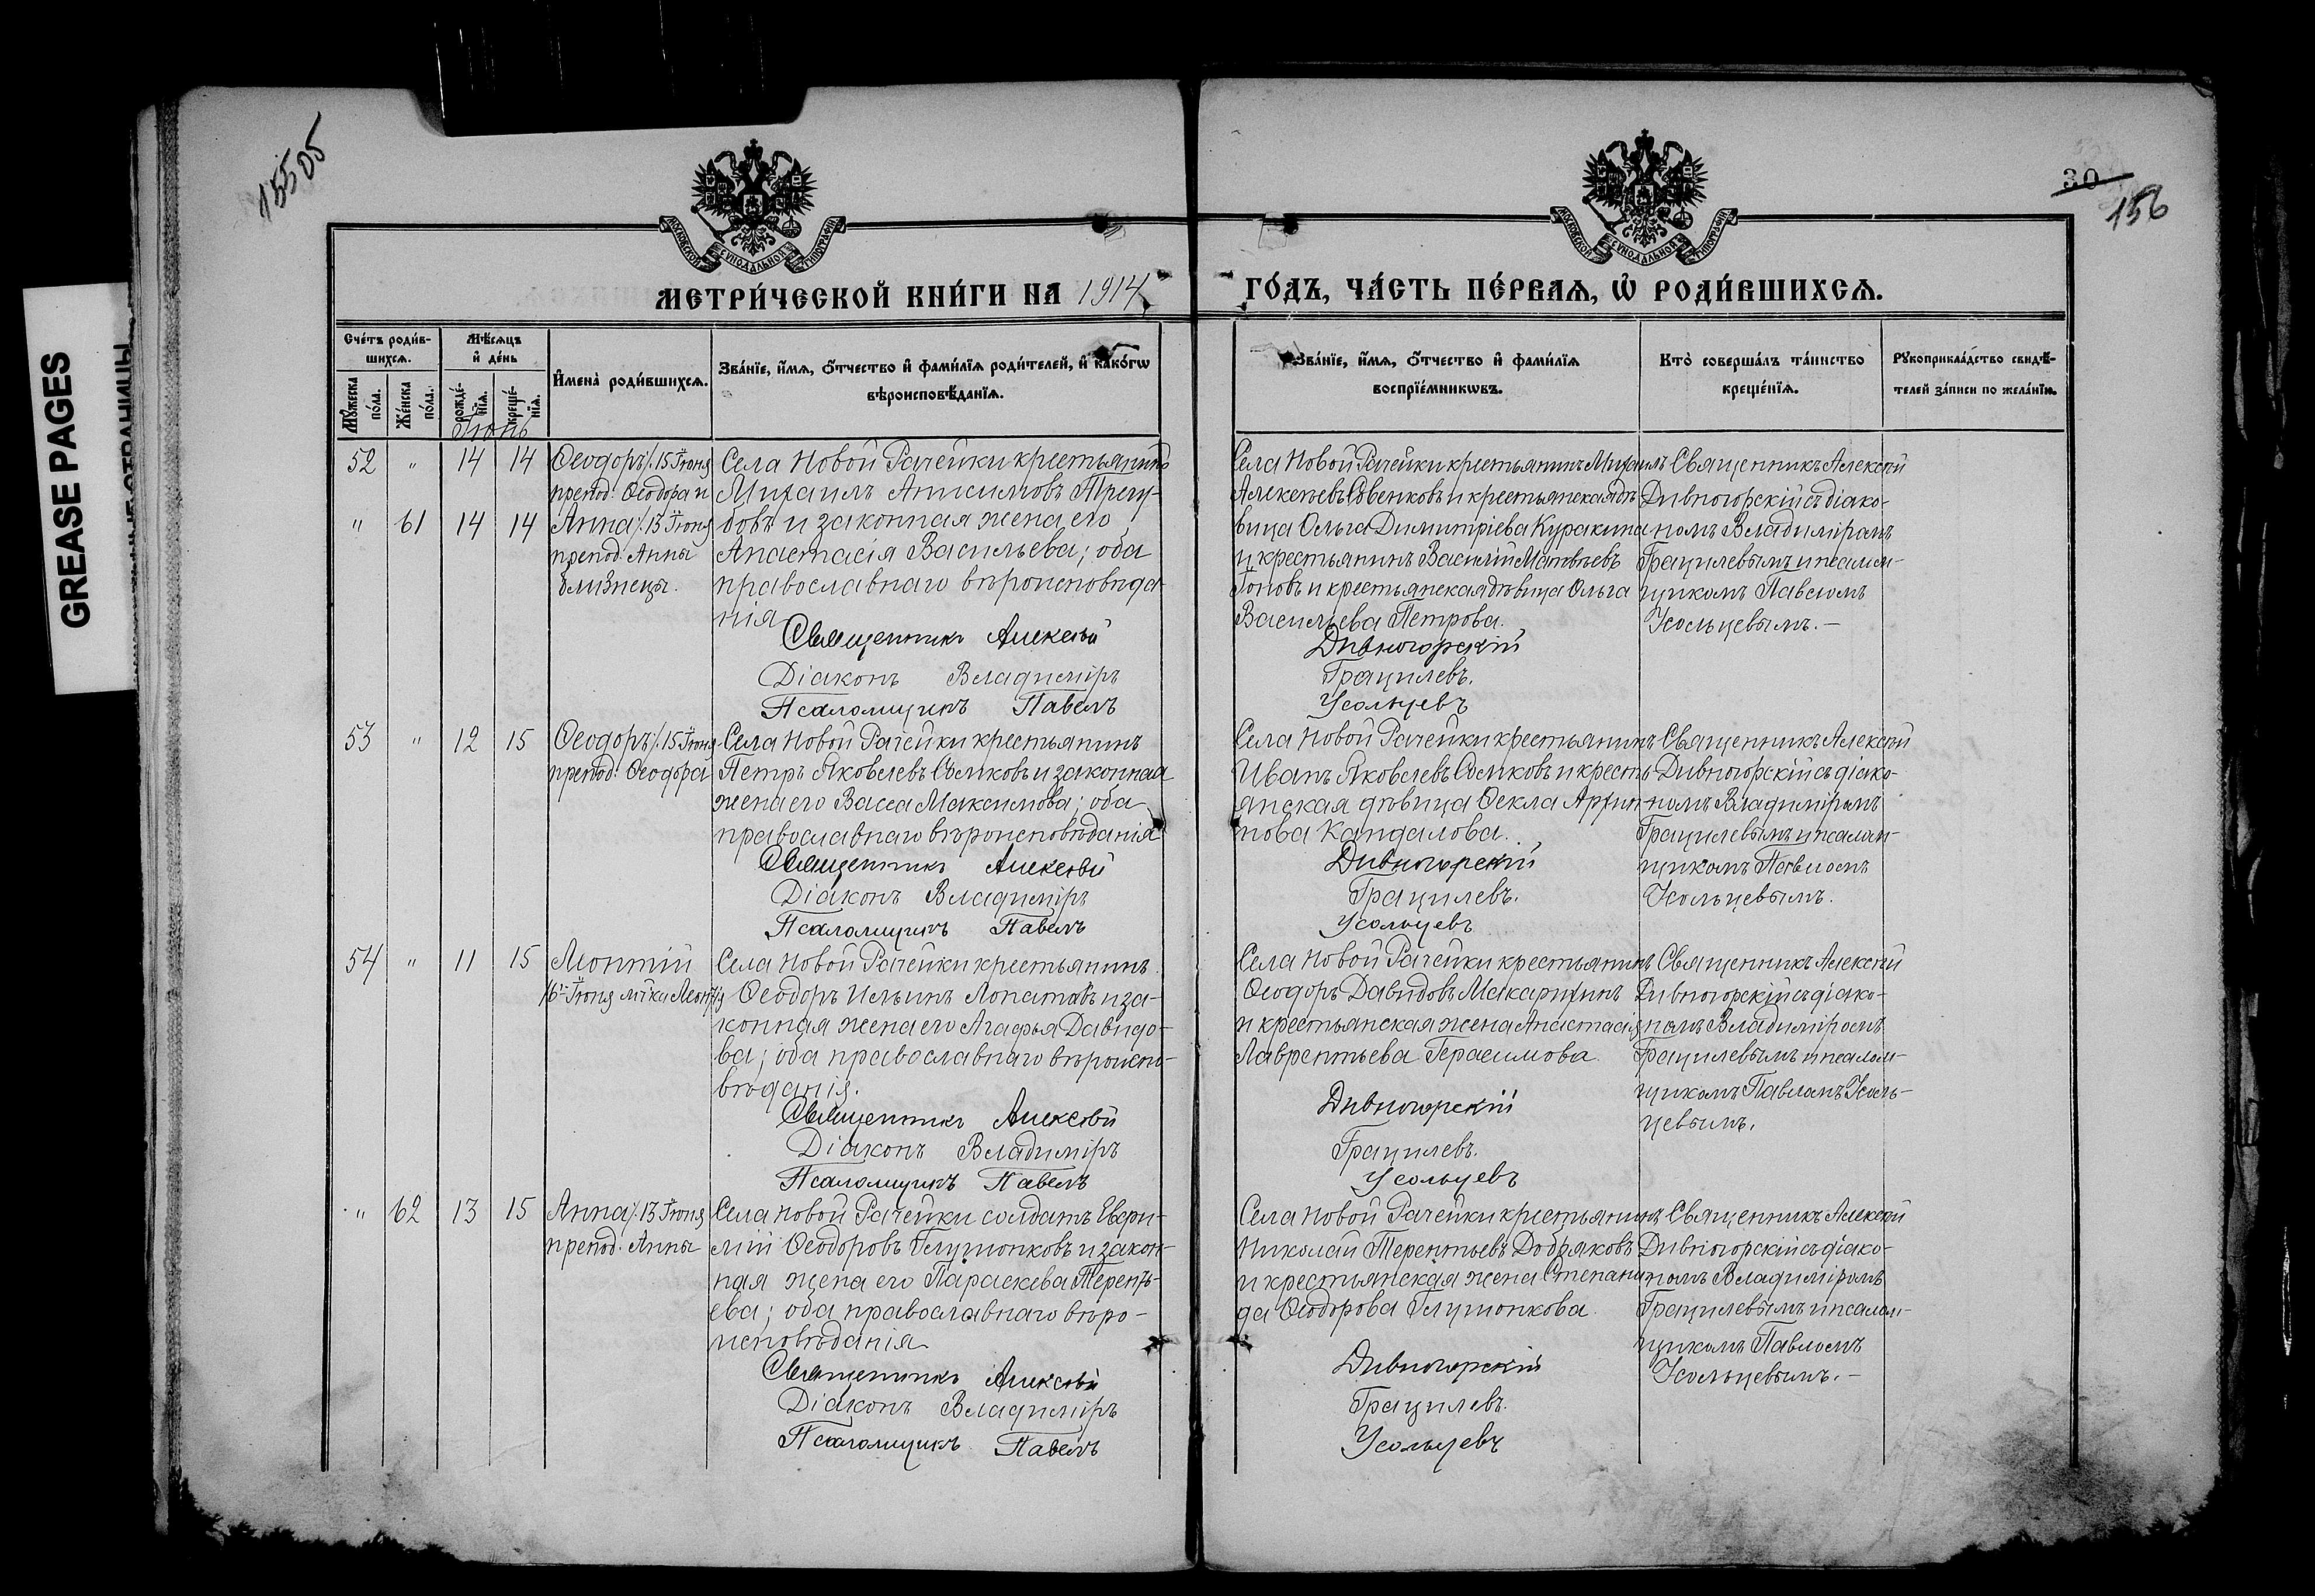 15505
30
156
GREASE PAGES
МОСКОВСКОЙ СѴНОДАЛЬНОЙ ТИПОГРАФІИ
МОСКОВСКОЙ СѴНОДАЛЬНОЙ ТИПОГРАФІИ
МЕТРИ́ЧЕСКОЙ КНИ́ГИ НА 1914
ГО́ДЪ, ЧА́СТЬ ПЕ́РВАѦ, Ѡ҆ РОДИ́ВШИХСѦ.
Сче́тъ роди́в-
шихсѧ.
Мѣ́сѧцъ
и҆ де́нь
Мꙋ́жеска по́ла.
Же́нска по́ла.
рожде́-
нїѧ.
креще́-
нїѧ.
И҆мена̀ роди́вшихсѧ.
Зва́нїе, и҆́мѧ, ѻ҆́тчество и҆ фами́лїѧ роди́телей, и҆ како́гѡ
вѣроисповѣ́данїѧ.
Зва́нїе, и҆́мѧ, ѻ҆́тчество и҆ фами́лїѧ
воспрїе́мникѡвъ.
Кто̀ соверша́лъ та́инство
креще́нїѧ.
Рꙋкоприкла́дство свидѣ́-
телей за́писи по жела́нїю.
Іюнь
52 " 14 14
Ѳеодоръ/. 15 Іюня
препод. Ѳеодора и
" 61 14 14
Анна/. 13 Іюня
препод. Анны
близнецы.
Села Новой Рачейки крестьянинъ
Михаилъ Анисимовъ Трегу-
бовъ и законная жена его
Анастасія Васильева; оба
православнаго вѣроисповѣда-
нія
Священникъ Алексѣй
Діаконъ Владиміръ
Псаломщикъ Павелъ
Села Новой Рачейки крестьянинъ Михаилъ
Алексѣевъ Совенковъ и крестьянская дѣ-
вица Ольга Димитріева Куракина
и крестьянинъ Василій Матвѣевъ
Поповъ и крестьянская дѣвица Ольга
Васильева Петрова.
Дивногорскій
Грацилевъ.
Усольцевъ
Священникъ Алексѣй
Дивногорскій съ діако-
номъ Владиміромъ
Грацилевымъ и псалом-
щикомъ Павломъ
Усольцевымъ. —
53 " 12 15
Ѳеодоръ/. 15 Іюня
препод. Ѳеодора
Села Новой Рачейки крестьянинъ
Петръ Яковлевъ Сомковъ и законная
жена его Васса Максимова; оба
православнаго вѣроисповѣданія
Священникъ Алексѣй
Діаконъ Владиміръ
Псаломщикъ Павелъ
Села Новой Рачейки крестьянинъ
Иванъ Яковлевъ Сомковъ и кресть-
янская дѣвица Ѳекла
нова Кандалова.
Дивногорскій
Грацилевъ.
Усольцевъ
Священникъ Алексѣй
Дивногорскій съ діако-
номъ Владиміромъ
Грацилевымъ и псалом-
щикомъ Павломъ
Усольцевымъ.
54 " 11 15
Леонтій
Села Новой Рачейки крестьянинъ
Ѳеодоръ Ильинъ Лопатовъ и за-
конная жена его Агафья Давидо-
ва; оба православнаго вѣроиспо-
вѣданія.
Священникъ Алексѣй
Діаконъ Владиміръ
Псаломщикъ Павелъ
Села Новой Рачейки крестьянинъ
Ѳеодоръ Давидовъ Макаришинъ
и крестьянская жена Анастасія
Лаврентьева Герасимова
Дивногорскій
Грацилевъ.
Усольцевъ
Священникъ Алексѣй
Дивногорскій съ діако-
номъ Владиміромъ
Грацилевымъ и псалом-
щикомъ Павломъ Усоль-
цевымъ.
" 62 13 15
Анна/. 13 Іюня
препод. Анны
Села Новой Рачейки солдатъ Евѳи-
мій Ѳеодоровъ Глухонковъ и закон-
ная жена его Параскева Теренть-
ева; оба православнаго вѣро-
исповѣданія
Священникъ Алексѣй
Діаконъ Владиміръ
Псаломщикъ Павелъ
Села Новой Рачейки крестьянинъ
Николай Терентьевъ Добряковъ
и крестьянская жена Степани-
да Ѳеодорова Глухонкова
Дивногорскій
Грацилевъ.
Усольцевъ
Священникъ Алексѣй
Дивногорскій съ діако-
номъ Владиміромъ
Грацилевымъ и псалом-
щикомъ Павломъ
Усольцевымъ. —